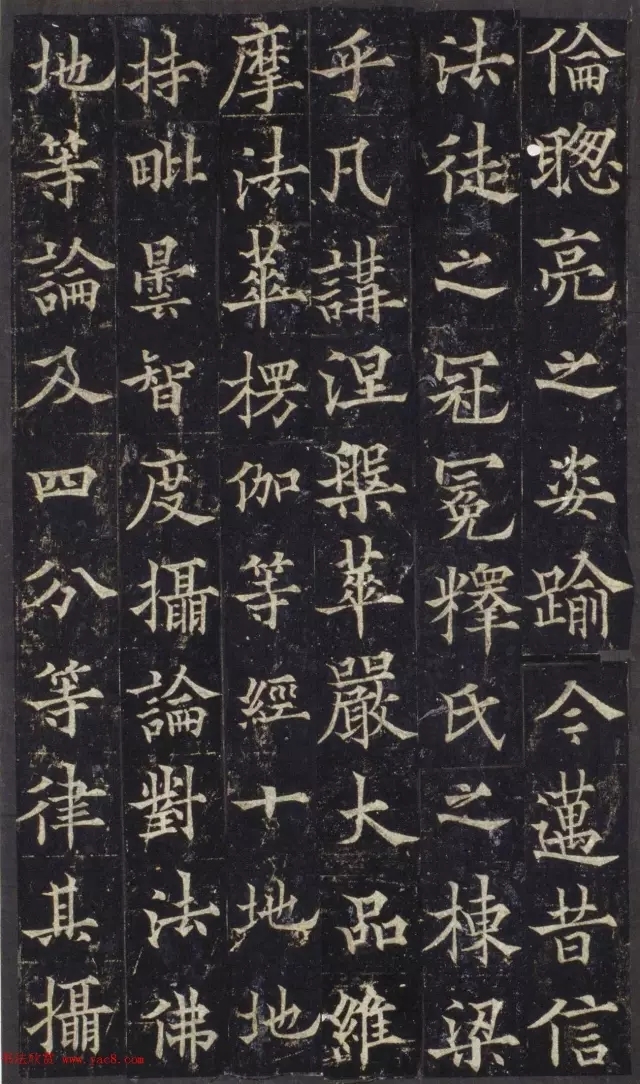 倫聰亮之姿踰今邁昔信
法徒之冠冕釋氏之棟梁
乎凡講涅槃華嚴大品維
摩法華楞伽等經十地地
持毗曇智度攝論對法佛
地等論及四分等律其攝
书法欣赏 www.yac8.com